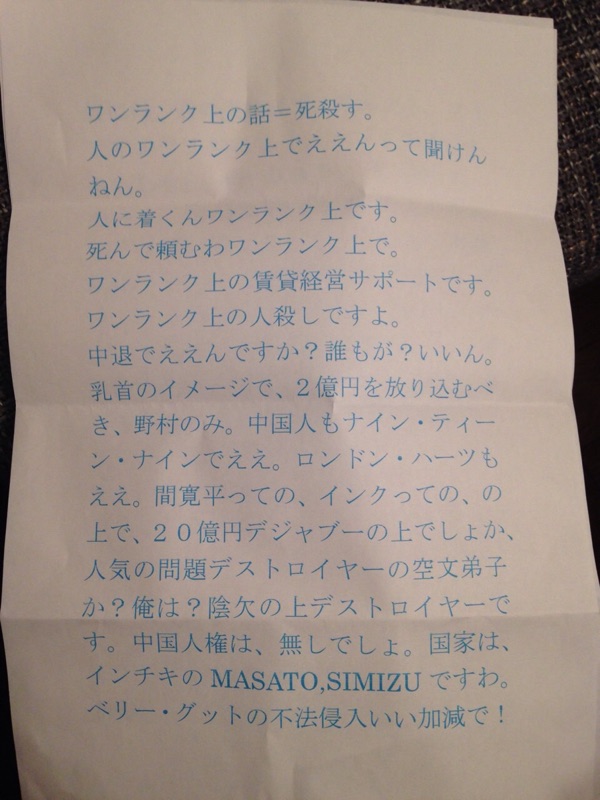 ワンランク上の話＝死殺す。
人のワンランク上でええんって聞けん
ねん。
人に着くんワンランク上です。
死んで頼むわワンランク上で。
ワンランク上の賃貸経営サポートです。
ワンランク上の人殺しですよ。
中退でええんですか？誰もが？いいん。
乳首のイメージで、２億円を放り込むべ
き、野村のみ。中国人もナイン・ティー
ン・ナインでええ。ロンドン・ハーツも
ええ。間寛平っての、インクっての、の
上で、２０億円デジャブーの上でしょか、
人気の問題デストロイヤーの空文弟子
か？俺は？陰欠の上デストロイヤーで
す。中国人権は、無しでしょ。国家は、
インチキの MASATO,SIMIZU ですわ。
ベリー・グットの不法侵入いい加減で！